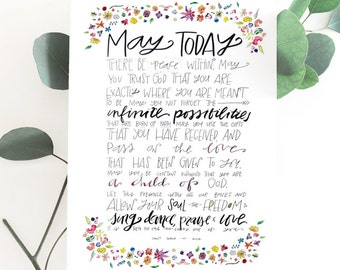 May TODAY
THERE BE peace WITHIN MAY
YOU TRUST GOD THAT YOU ARE
EXACTLY WHERE YOU ARE MEANT
TO BE MAY YOU NOT FORGET THE
infinite possibilities
THAT ARE BORN OF FAITH MAY YOU USE THE GIFTS
THAT YOU HAVE RECEIVED AND
Pass on the love
THAT HAS BEEN GIVEN TO YOU,
MAY YOU BE CONTENT KNOWING THAT YOU ARE
a child of GOD.
LET THIS PRESENCE SETTLE INTO OUR BONES AND
ALLOW YOUR SOUL the FREEDOM to
sing, dance, praise & love